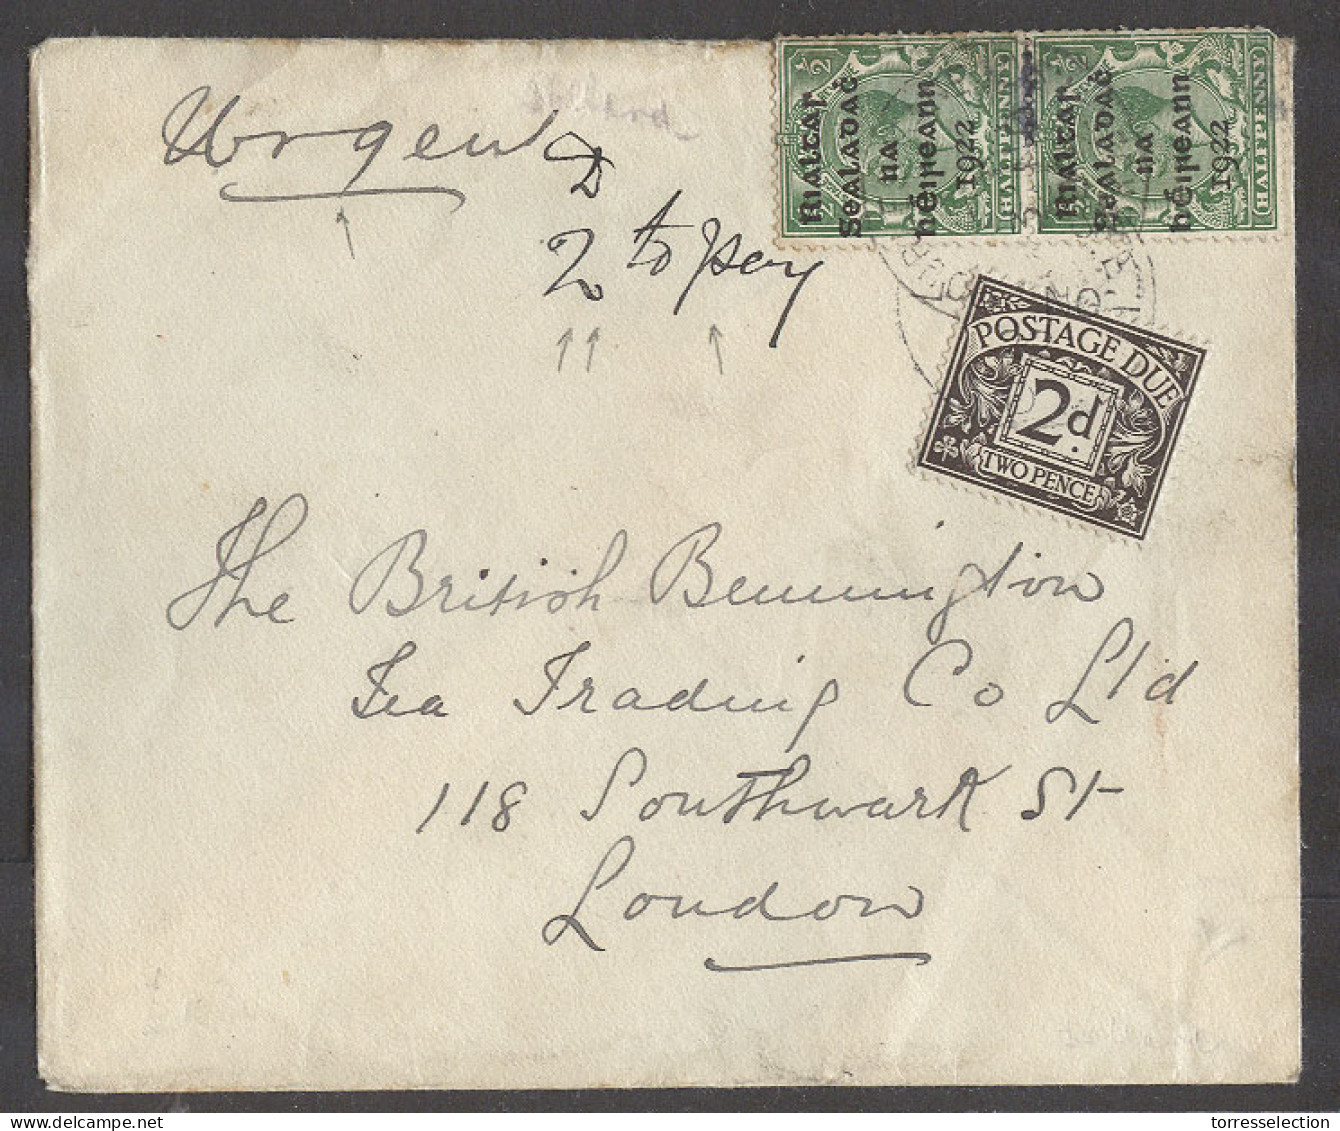 Urgent
D
2 to pay
½
HALFPENNY
Rialtas
Sealadač
na
hÉireann
1922
½
HALFPENNY
Rialtas
Sealadač
na
hÉireann
1922
POSTAGE DUE
2d.
TWO PENCE
The British Bennington
Tea Trading Co Ltd
118 Southwark St
London
torresselection